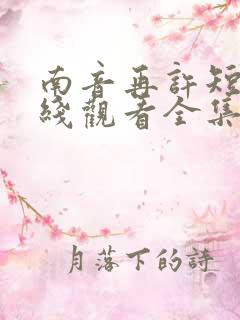 南音再許短
綫觀看全集
月落下的詩